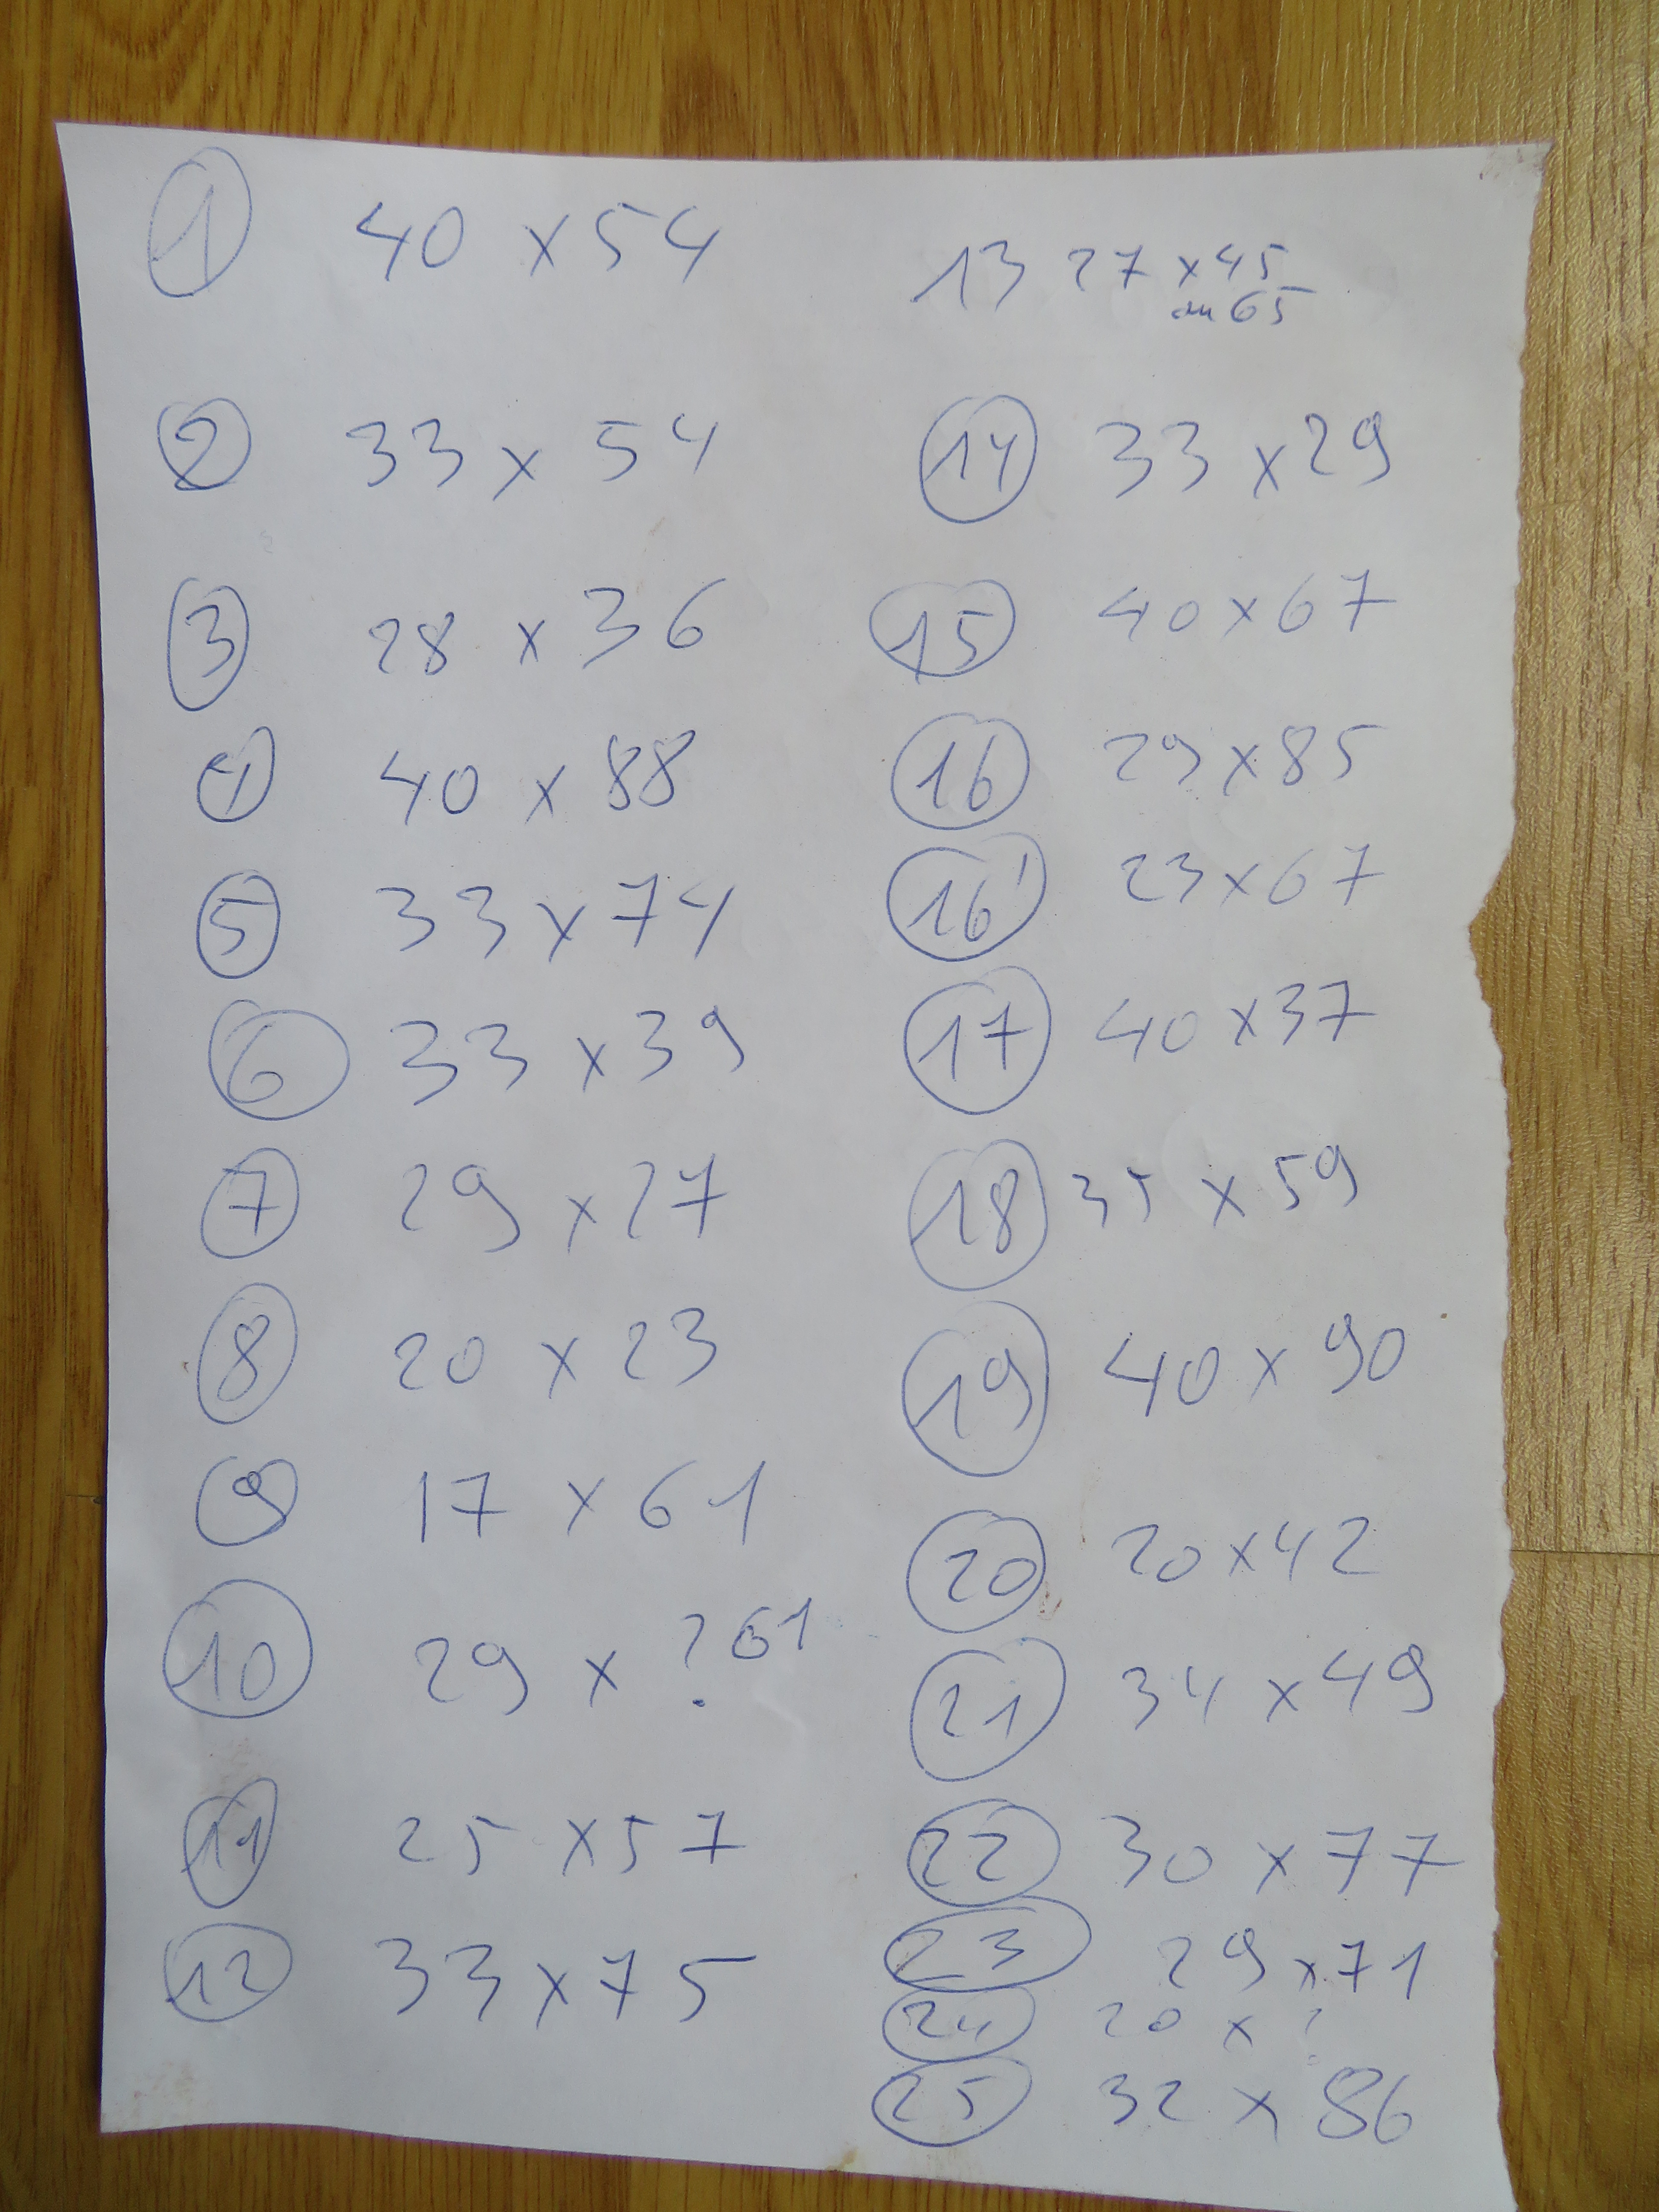 1 40 x 54
2 33 x 54
3 28 x 36
4 40 x 88
5 33 x 74
6 33 x 39
7 29 x 27
8 20 x 23
9 17 x 61
10 29 x ? 61
11 25 x 57
12 33 x 75
13 27 x 45
au 65
14 33 x 29
15 40 x 67
16 29 x 85
16' 23 x 67
17 40 x 37
18 35 x 59
19 40 x 90
20 20 x 42
21 34 x 49
22 30 x 77
23 29 x 71
24 20 x ?
25 32 x 86